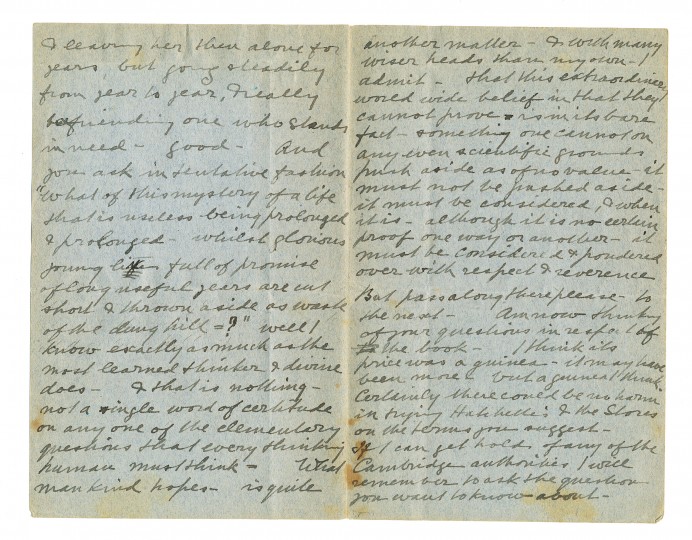 & leaving her then alone for
years but going steadily
from year to year, & really
befriending one who stands
in need - good - And
you ask in tentative fashion
"What of this mystery of a life
that is useless being prolonged
& prolonged - whilst glorious
young life full of promise
of long useful years are cut
short & thrown aside as waste
of the dung hill = ?" Well I
know exactly as much as the
most learned thinker & divine
does - & that is nothing -
not a single word of certitude
on any one of the elementary
questions that every thinking
human must think - What
mankind hopes - is quite
another matter - & with many
wiser heads than my own - I
admit - that this extraordinary
world wide belief in that they
cannot prove - is in its bare
fact - something one cannot on
any even scientific grounds
push aside as of no value - it
must not be pushed aside -
it must be considered, & when
it is - although it is no certain
proof one way or another - it
must be considered & pondered
over with respect & reverence
But pass along there please - to
the next - Am now thinking
of your questions in respect of
the book - I think its
price was a guinea - it may have
been more - but a guinea I think -
Certainly there could be no harm
in trying Hatchette's & the Stores
on the terms you suggest -
If I can get hold of any of the
Cambridge authorities I will
remember to ask the question
you want to know about -